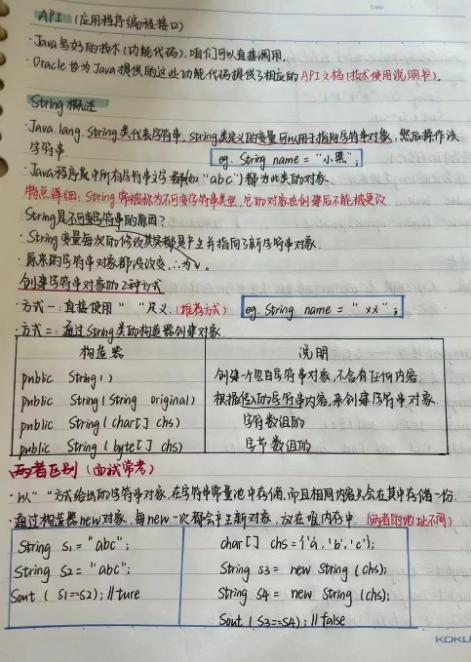 API (应用程序编程接口)
· Java写好的技术(功能代码),咱们可以直接调用。
· Oracle也为Java提供的这些功能代码提供了相应的API文档(技术使用说明书)。
String概述
· Java.lang.String类代表字符串,String类定义的变量可以用于指向字符串对象,然后操作该
字符串
eg. String name = "小黑";
· Java程序中所有字符串文字(如"abc")都为此类的对象
特点详细:String常被称为不可变字符串类型,它的对象在创建后不能被更改
String是不可变字符串的原因?
· String变量每次的修改其实都是产生并指向了新的字符串对象.
· 原来的字符串对象都没改变,∴为√.
创建字符串对象的2种方式
· 方式一:直接使用" "定义.(推荐方式)
eg. String name = "xx";
· 方式二:通过String类的构造器创建对象.
构造器 说明
public String() 创建一个空白字符串对象,不含有任何内容
public String(String original) 根据传入的字符串内容,来创建字符串对象.
public String(char[] chs) 字符数组的
public String(byte[] chs) 字节数组的
两者区别(面试常考)
· 以" "方式给出的字符串对象,在字符串常量池中存储,而且相同内容只会在其中存储一份.
· 通过构造器new对象,每new一次都会产生新对象,放在堆内存中.(两者的地址不同)
String s1 = "abc"; char[] chs = {'a', 'b', 'c'};
String s2 = "abc"; String s3 = new String(chs);
Sout (s1==s2); //ture String s4 = new String(chs);
Sout (s3==s4); //false
KOKU